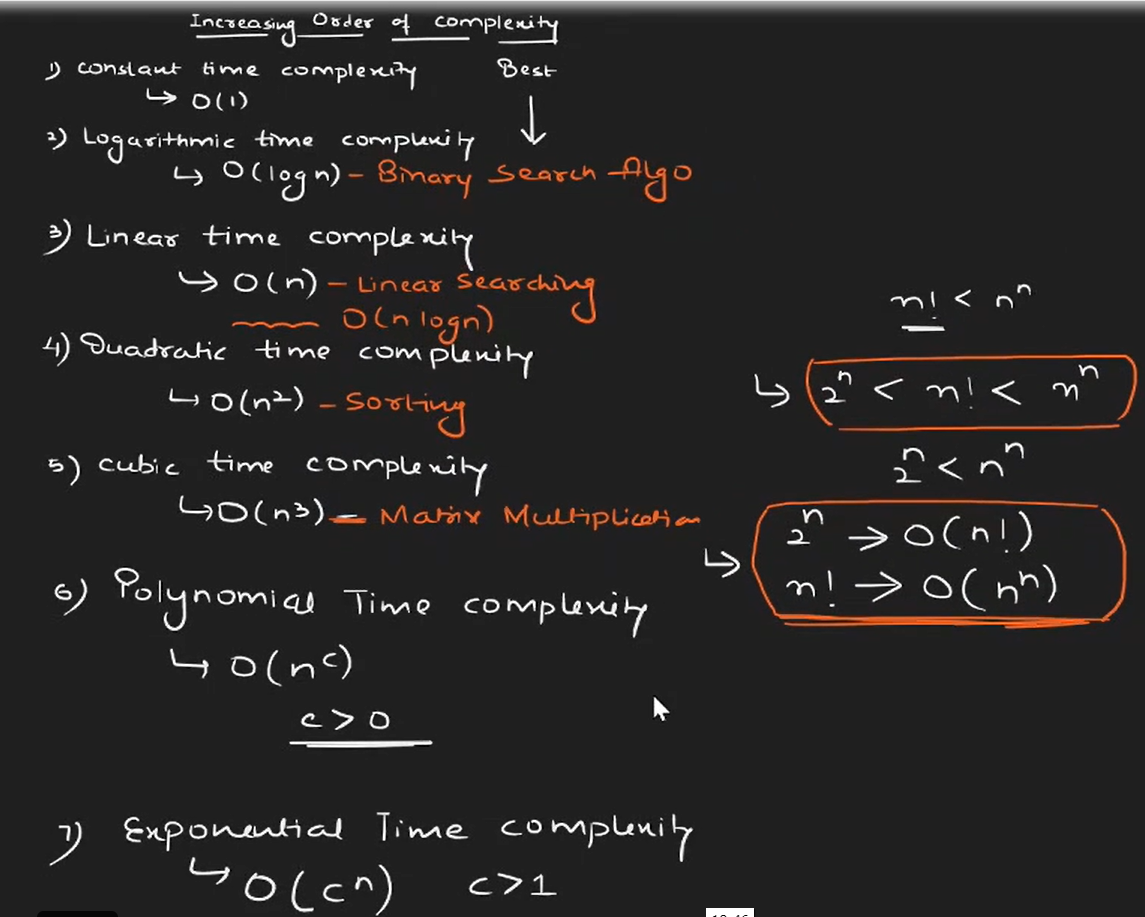 Increasing Order of complexity
1) constant time complexity Best
↳ O(1) ↓
2) Logarithmic time complexity
↳ O(log n) - Binary Search Algo
3) Linear time complexity
↳ O(n) - Linear Searching
O(n logn)
4) Quadratic time complexity
↳ O(n²) - Sorting
5) cubic time complexity
↳ O(n³) - Matrix Multiplication
6) Polynomial Time complexity
↳ O(nᶜ)
c > 0
7) Exponential Time complexity
↳ O(cⁿ) c>1
n! < nⁿ
↳ 2ⁿ < n! < nⁿ
2ⁿ < nⁿ
↳ 2ⁿ → O(n!)
n! → O(nⁿ)